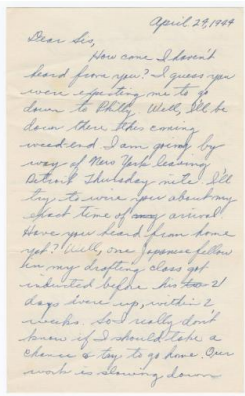 April 29, 1944
Dear Sis,
How come I haven't
heard from you? I guess you
were expecting me to go
down to Philly. Well, I'll be
down there this coming
weekend. I am going by
way of New York leaving
Detroit Thursday nite. I'll
try to wire you about my
exact time of arrival.
Have you heard from home
yet? Well, one Japanese fellow
in my drafting class got
inducted before his 21
days were up, within 2
weeks. So I really don't
know if I should take a
chance & try to go home. Our
work is slowing down